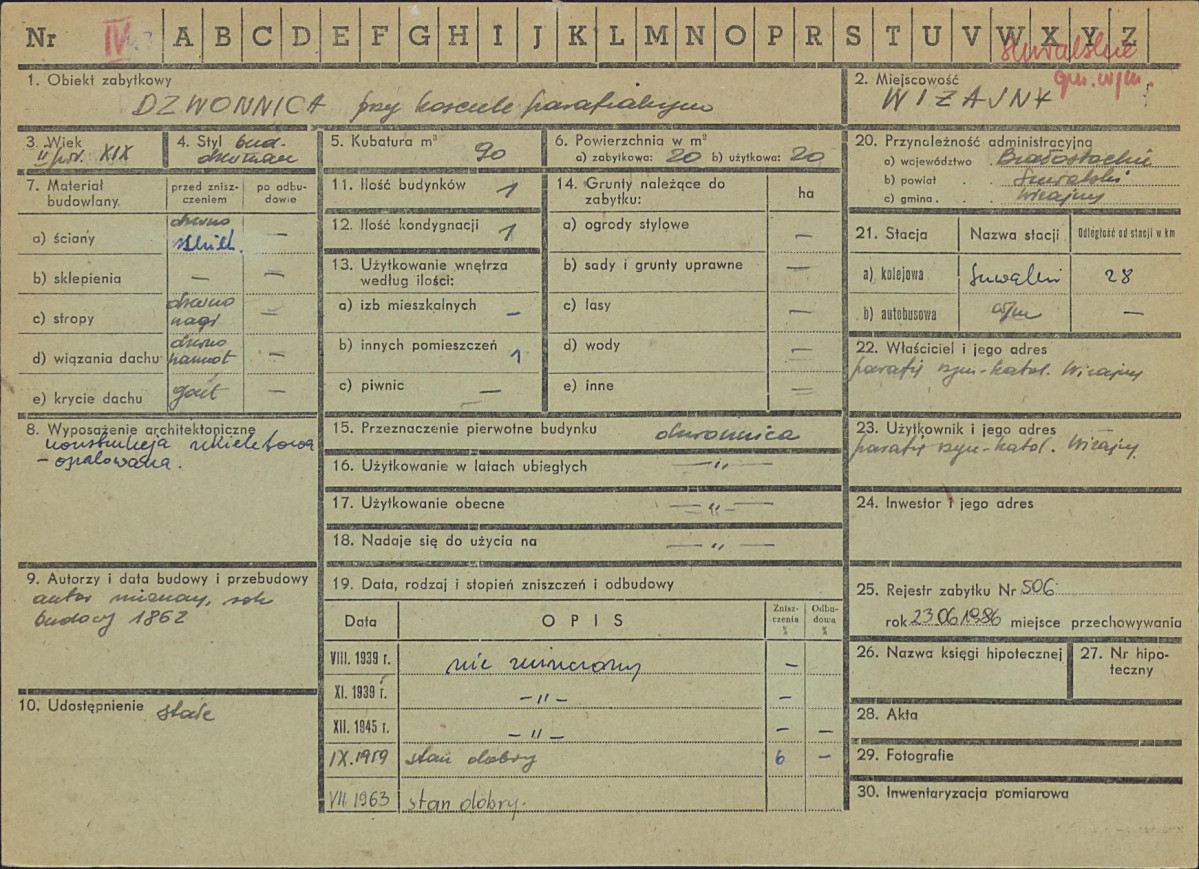 Nr IV A B C D E F G H I J K L M N O P R S T U V W X Y Z
suwalskie
gm. w/m.
1. Obiekt zabytkowy
DZWONNICA przy kościele parafialnym
2. Miejscowość
WIŻAJNY
3. Wiek
II poł. XIX
4. Styl bud.
drewnian
5. Kubatura m³ 90
6. Powierzchnia w m²
a) zabytkowa: 20 b) użytkowa: 20
7. Materiał budowlany.
przed zniszczeniem
po odbudowie
a) ściany drewno szkiel. —
b) sklepienia — —
c) stropy drewno nagi —
d) wiązania dachu drewno namiot —
e) krycie dachu gont —
8. Wyposażenie architektoniczne
konstrukcja szkieletowa
- opalowana.
9. Autorzy i data budowy i przebudowy
autor nieznany, rok
budowy 1862
10. Udostępnienie stałe
11. Ilość budynków 1
12. Ilość kondygnacji 1
13. Użytkowanie wnętrza
według ilości:
a) izb mieszkalnych —
b) innych pomieszczeń 1
c) piwnic —
14. Grunty należące do
zabytku:
ha
a) ogrody stylowe —
b) sady i grunty uprawne —
c) lasy
d) wody —
e) inne =
15. Przeznaczenie pierwotne budynku dzwonnica
16. Użytkowanie w latach ubiegłych — " —
17. Użytkowanie obecne — " —
18. Nadaje się do użycia na — " —
19. Data, rodzaj i stopień zniszczeń i odbudowy
Data OPIS Zniszczenia % Odbudowa %
VIII. 1939 r. nie zniszczony —
XI. 1939 r. — " — —
XII. 1945 r. — " — — —
IX.1959 stan dobry 6 —
VII 1963 stan dobry.
20. Przynależność administracyjna
a) województwo Białostockie
b) powiat Suwalski
c) gmina Wiżajny
21. Stacja Nazwa stacji Odległość od stacji w km
a) kolejowa Suwałki 28
b) autobusowa w/m —
22. Właściciel i jego adres
parafia rzym-katol. Wiżajny
23. Użytkownik i jego adres
parafia rzym-katol. Wiżajny
24. Inwestor i jego adres
25. Rejestr zabytku Nr 506
rok 23.06.1986 miejsce przechowywania
26. Nazwa księgi hipotecznej
27. Nr hipoteczny
28. Akta
29. Fotografie
30. Inwentaryzacja pomiarowa